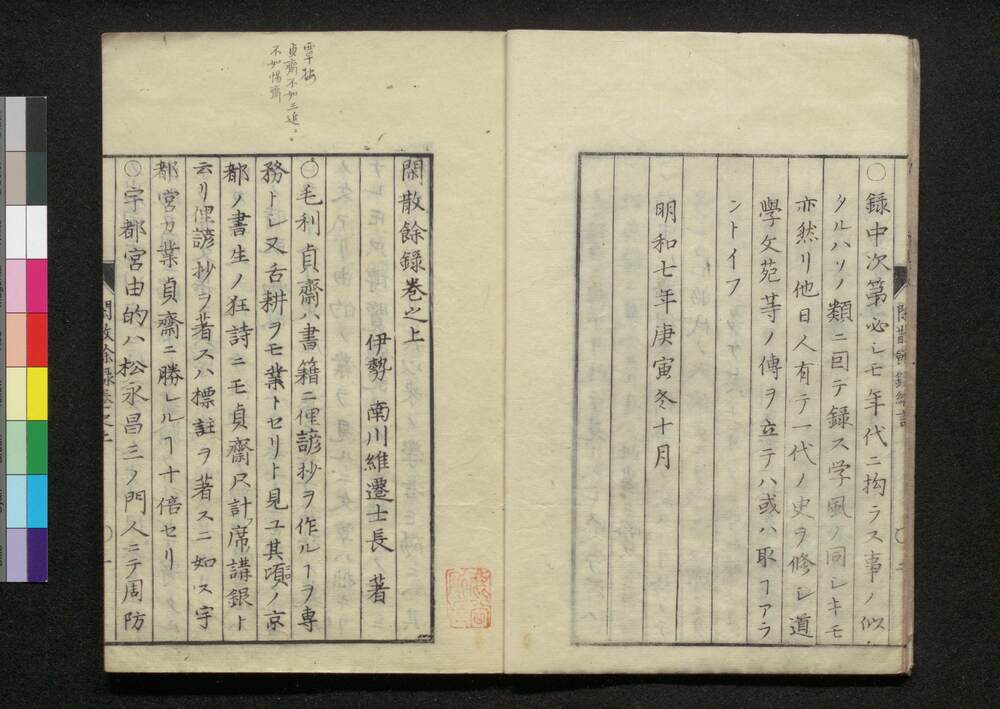 〇録中次第必シモ年代ニ拘ラス事ノ似
タルハソノ類ニ因テ録ス学風ノ同シキモ
亦然リ他日人有テ一代ノ史ヲ修シ道
學文苑等ノ傳ヲ立テハ或ハ取ヿアラ
ントイフ
明和七年庚寅冬十月
閑散餘録卷之上
伊勢 南川維遷士長 著
〇毛利貞齋ハ書籍ニ俚諺抄ヲ作ルヿヲ專
務トシ又舌耕ヲモ業トセリト見ユ其頃ノ京
都ノ書生ノ狂詩ニモ貞齋尺計席講銀ト
云リ俚諺抄ヲ著スハ標註ヲ著スニ如ス宇
都宮カ業貞齋ニ勝レルヿ十倍セリ
〇宇都宮由的ハ松永昌三ノ門人ニテ周防
貞齋不如三近
不如惕齋